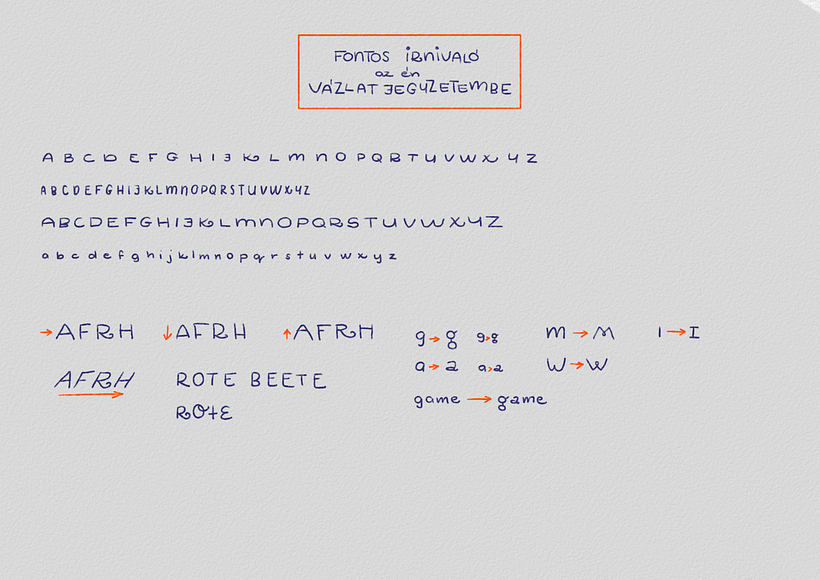 FONTOS iRNiVALÓ
az én
VÁZLAT JEGYZETEMBE
A B C D E F G H I J K L m n O P Q R T U V W X Y Z
A B C D E F G H I J K L m n O P Q R S T U V W X Y Z
A B C D E F G H I J K L m n O P Q R S T U V W X Y Z
a b c d e f g h i j k l m n o p q r s t u v w x y z
→ AFRH ↓ AFRH ↑ AFRH
g → g g > g m → M I → I
a → a a > a W → W
AFRH ROTE BEETE
game → game
ROtE